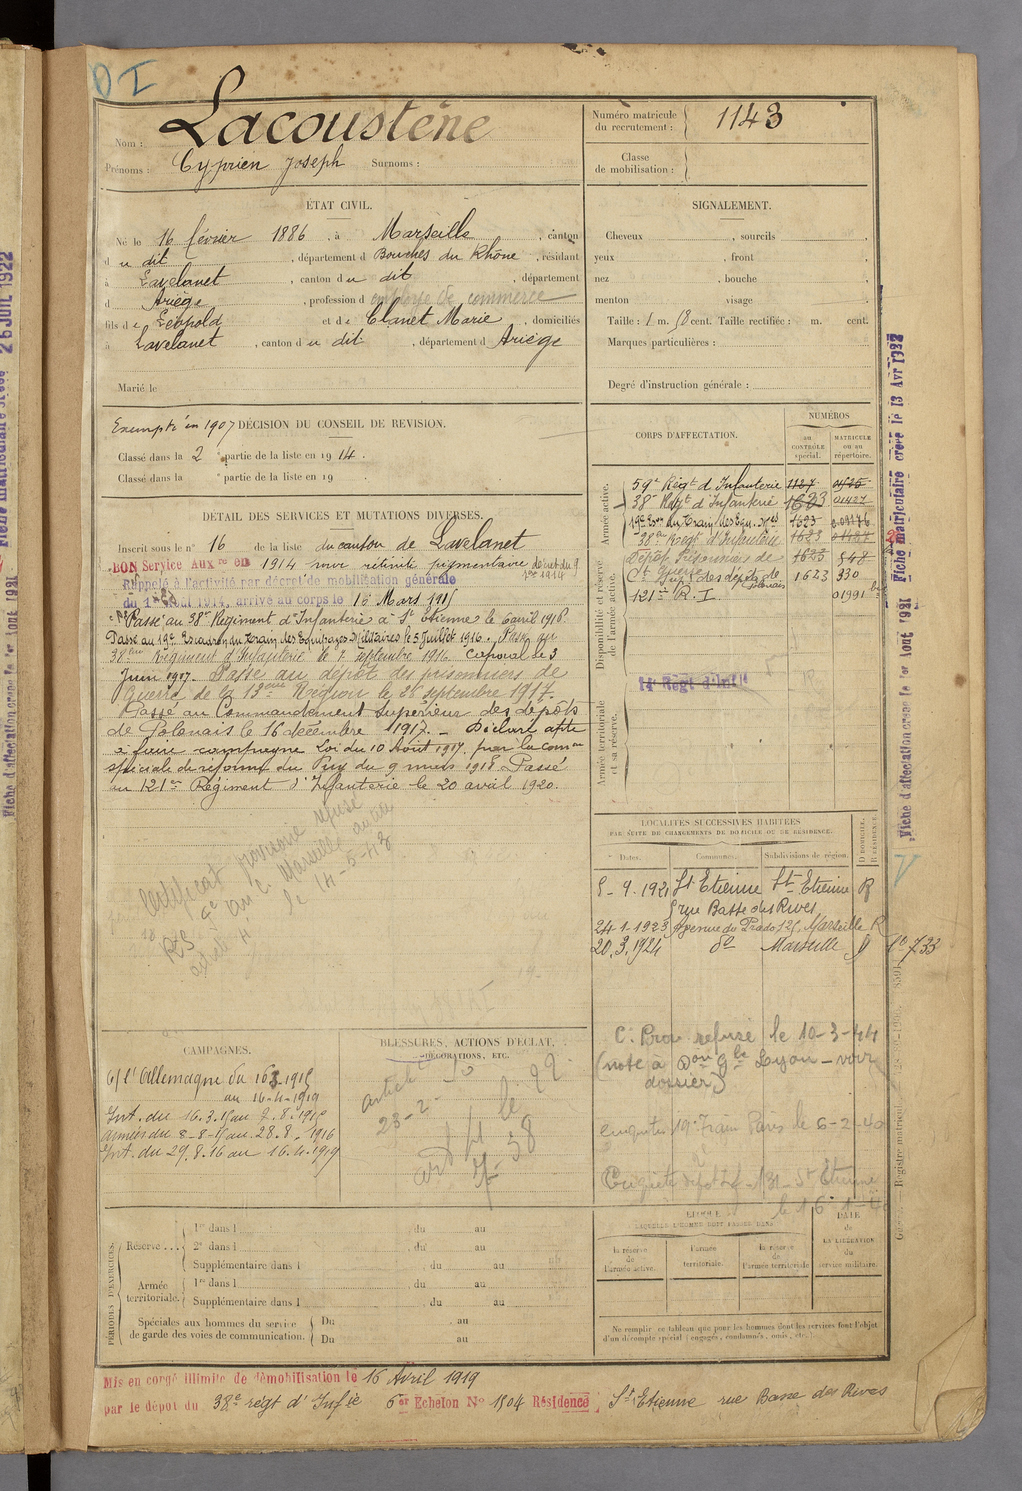 D I
Nom : Lacoustène
Prénoms : Cyprien Joseph Surnoms :
Numéro matricule du recrutement : 1143
Classe de mobilisation :
ÉTAT CIVIL.
Né le 16 février 1886, à Marseille, canton
du dit, département d Bouches du Rhône, résidant
à Lavelanet, canton du dit, département
d Ariège, profession d employé de commerce
fils de Léopold et de Clanet Marie, domiciliés
à Lavelanet, canton du dit, département d Ariège
Marié le
SIGNALEMENT.
Cheveux , sourcils
yeux , front
nez , bouche
menton visage
Taille : 1 m. 58 cent. Taille rectifiée : m. cent.
Marques particulières :
Degré d'instruction générale :
Exempté en 1907 DÉCISION DU CONSEIL DE REVISION.
Classé dans la 2e partie de la liste en 1914.
Classé dans la e partie de la liste en 19 .
DÉTAIL DES SERVICES ET MUTATIONS DIVERSES.
Inscrit sous le n° 16 de la liste du canton de Lavelanet
BON Service Auxre en 1914 pour rétinite pigmentaire décret du 9
Rappelé à l'activité par décret de mobilisation générale
du 1er Août 1914, arrivé au corps le 16 Mars 1915
Passé au 38e Régiment d'Infanterie à St Etienne le 6 avril 1918.
Passé au 19e Escadron du Train des Equipages Militaires le 5 Juillet 1916. Passé au
38ème Régiment d'Infanterie le 7 septembre 1916 Caporal le 3
Juin 1917. Passé au dépôt des prisonniers de
Guerre de la 13ème Région le 26 septembre 1917.
Passé au Commandement Supérieur des dépôts
de Polonais le 16 décembre 1917. - Déclaré apte
à faire campagne Loi du 10 Août 1917, par la comon
spéciale de réforme du Puy du 9 mars 1918. Passé
au 121e Régiment d'Infanterie le 20 avril 1920.
Certificat provisoire refusé
Marseille
le 14-5-43
CORPS D'AFFECTATION.
NUMÉROS
au CONTRÔLE spécial.
MATRICULE ou au répertoire.
Armée active.
59e Régt d'Infanterie 1127
38e Régt d'Infanterie 1623 01427
Disponibilité et réserve de l'armée active.
19e Eson du Train des Equ. Mres 1623
38ème Régt d'Infanterie 1623
Dépôt Prisonniers de Guerre 1623 548
Ct Supr des dépôts de Polonais 1623 330
121e R. I. 01991
14e Régt d'Infie
Armée territoriale et sa réserve.
LOCALITÉS SUCCESSIVES HABITÉES
PAR SUITE DE CHANGEMENTS DE DOMICILE OU DE RÉSIDENCE.
Dates. Communes. Subdivisions de région. D DOMICILE. R RÉSIDENCE.
5-9-1921 St Etienne St Etienne R
5 rue Basse des Rives
24-1-1923 Avenue du Prado 125, Marseille R
20.3.1924 do Marseille D
733
C. Prov refusé le 10-3-44
(note à Don Gle Lyon - voir
dossier)
enquêtes 19e Train Paris le 6-2-40
Enquête dépôt 131 - St Etienne
le 16-1-40
CAMPAGNES.
C/ l'Allemagne du 16-3-1915
au 16-4-1919
Int. du 16.3.15 au 7.8.1915
Armées du 8-8-15 au 28.8.1916
Int. du 29.8.16 au 16.4.1919
BLESSURES, ACTIONS D'ÉCLAT,
DÉCORATIONS, ETC.
article
23-2-
38
PÉRIODES D'EXERCICES.
Réserve... 1re dans l du au
2e dans l du au
Supplémentaire dans l , du au
Armée territoriale. 1re dans l du au
Supplémentaire dans l , du au
Spéciales aux hommes du service de garde des voies de communication. Du au
Du au
ÉPOQUE À LAQUELLE L'HOMME DOIT PASSER DANS
la réserve de l'armée active.
l'armée territoriale.
la réserve de l'armée territoriale
DATE de LA LIBÉRATION du service militaire.
Ne remplir ce tableau que pour les hommes dont les services font l'objet d'un décompte spécial (engagés, condamnés, omis, etc.).
Mis en congé illimité de démobilisation le 16 Avril 1919
par le dépôt du 38e régt d'Infie 6e Echelon N° 1504 Résidence St Etienne rue Basse des Rives
Fiche d'affectation créée le 1er Aout 1921 Fiche matriculaire créée le 13 Avr 1922
Fiche d'affectation créée le 1er Aout 1921
26 JUIL 1922